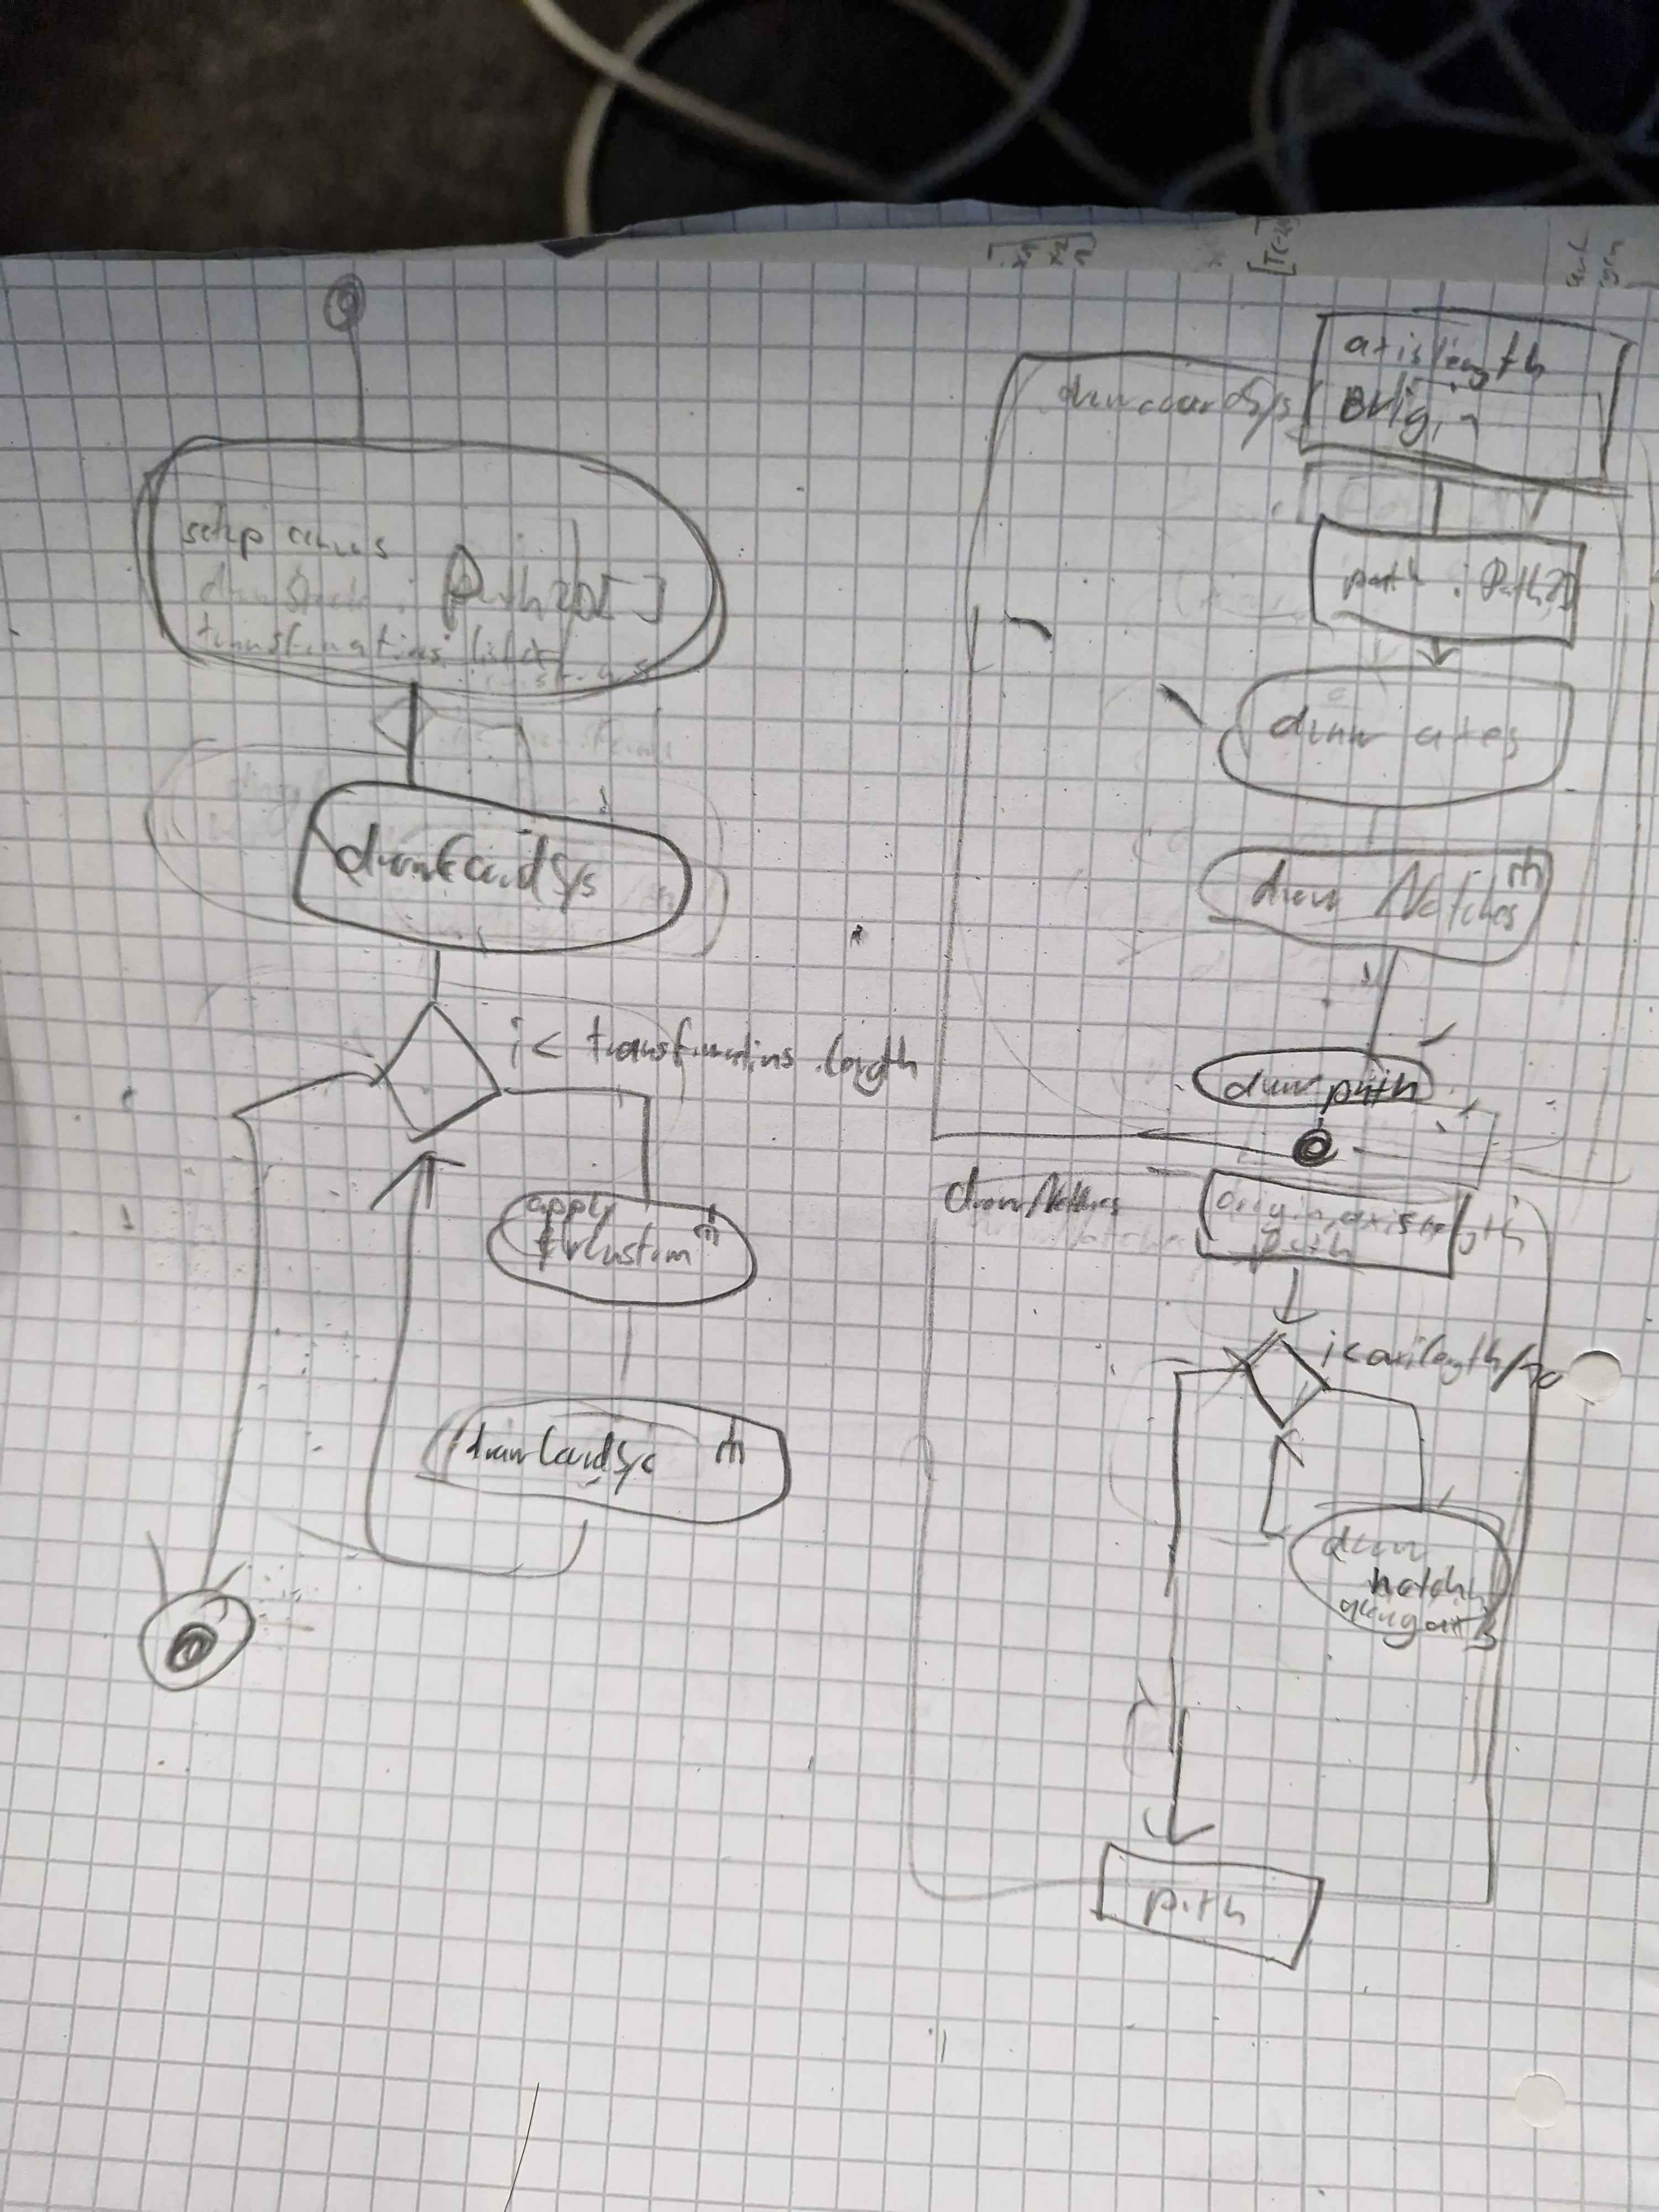 setup canvas
: Path2D[]
transformations: list of
drawCoordSys
i < transformations.length
apply
drawCoordSys
drawcoordSys
axislength
origin
path : Path2D
draw axes
draw Notches
draw path
drawNotches
origin, axislength
path
i < axilength/10
draw
notch
along axis
path